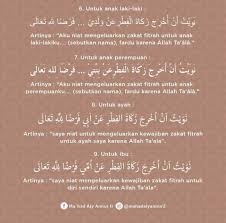 6. Untuk anak laki-laki :
نَوَيْتُ أَنْ أُخْرِجَ زَكَاةَ الْفِطْرِ عَنْ وَلَدِيْ ... فَرْضًا لِلّٰهِ تَعَالَى
Artinya : "Aku niat mengeluarkan zakat fitrah untuk anak
laki-lakiku... (sebutkan nama), fardu karena Allah Ta'âlâ."
7. Untuk anak perempuan :
نَوَيْتُ أَنْ أُخْرِجَ زَكَاةَ الْفِطْرِ عَنْ بِنْتِيْ ... فَرْضًا لِلّٰهِ تَعَالَى
Artinya : "Aku niat mengeluarkan zakat fitrah untuk anak
perempuanku... (sebutkan nama), fardu karena Allah Ta'âlâ."
8. Untuk ayah :
نَوَيْتُ أَنْ أُخْرِجَ زَكَاةَ الْفِطْرِ عَنْ أَبِيْ فَرْضًا لِلّٰهِ تَعَالَى
Artinya : "saya niat mengeluarkan kewajiban zakat fitrah
untuk ayah saya karena Allah Ta'ala".
9. Untuk ibu :
نَوَيْتُ أَنْ أُخْرِجَ زَكَاةَ الْفِطْرِ عَنْ أُمِّيْ فَرْضًا لِلّٰهِ تَعَالَى
Artinya : "saya niat mengeluarkan kewajiban zakat fitrah untuk
diri sendiri karena Allah Ta'ala".